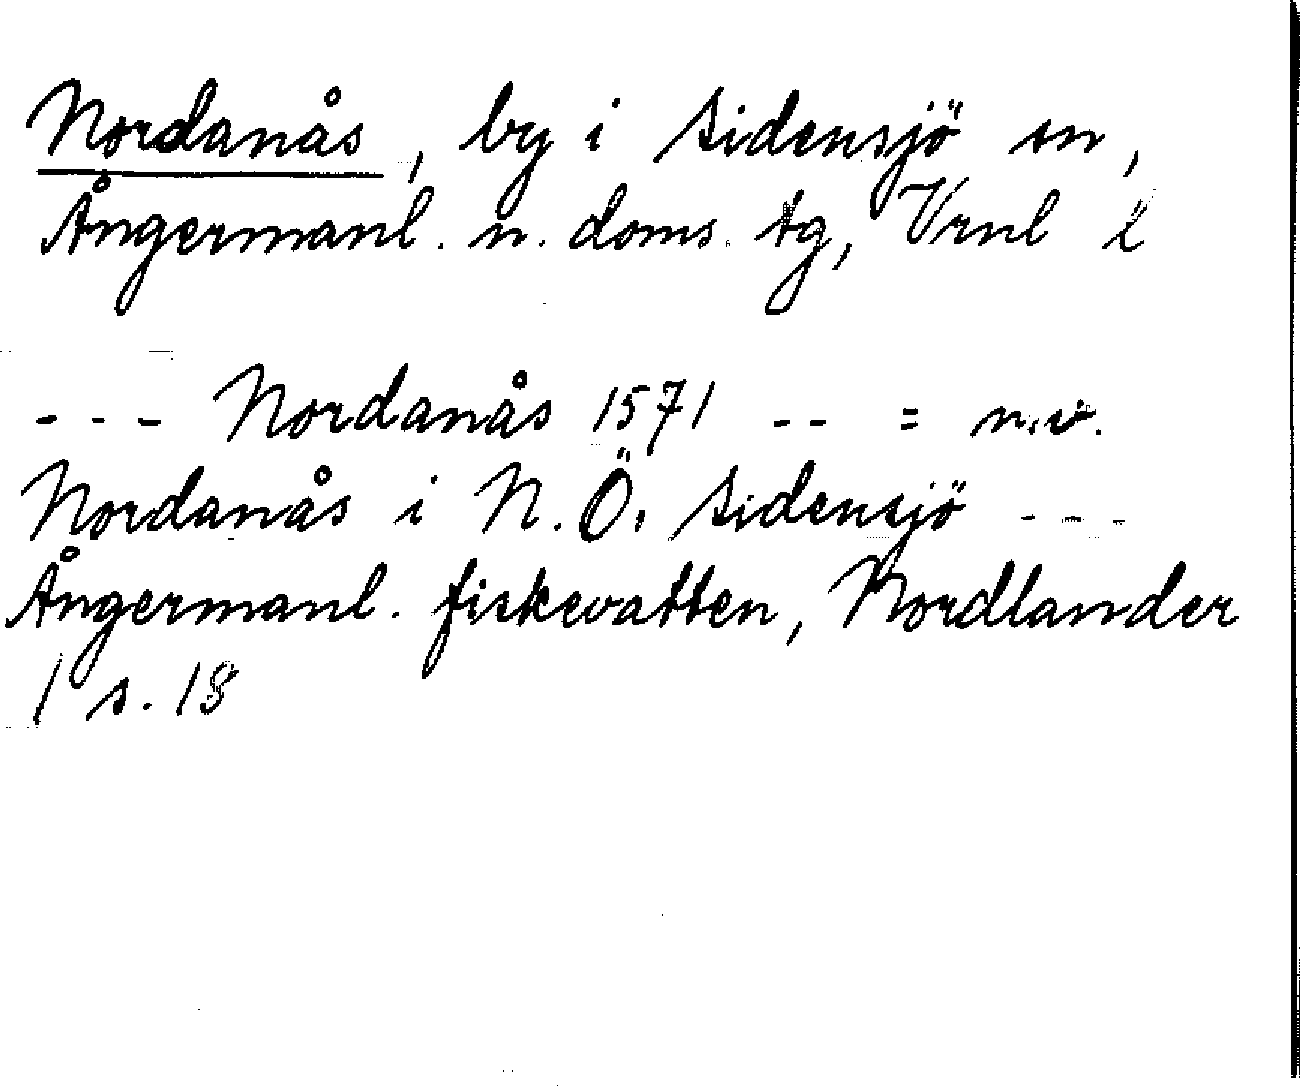 Nordanås, by i Sidensjö sn,
Ångermanl. n. doms. tg, Vrnl l
--- Nordanås 1571 -- = n.v.
Nordanås i N.Ö. Sidensjö ---
Ångermanl. fiskevatten, Nordlander
1 s. 18